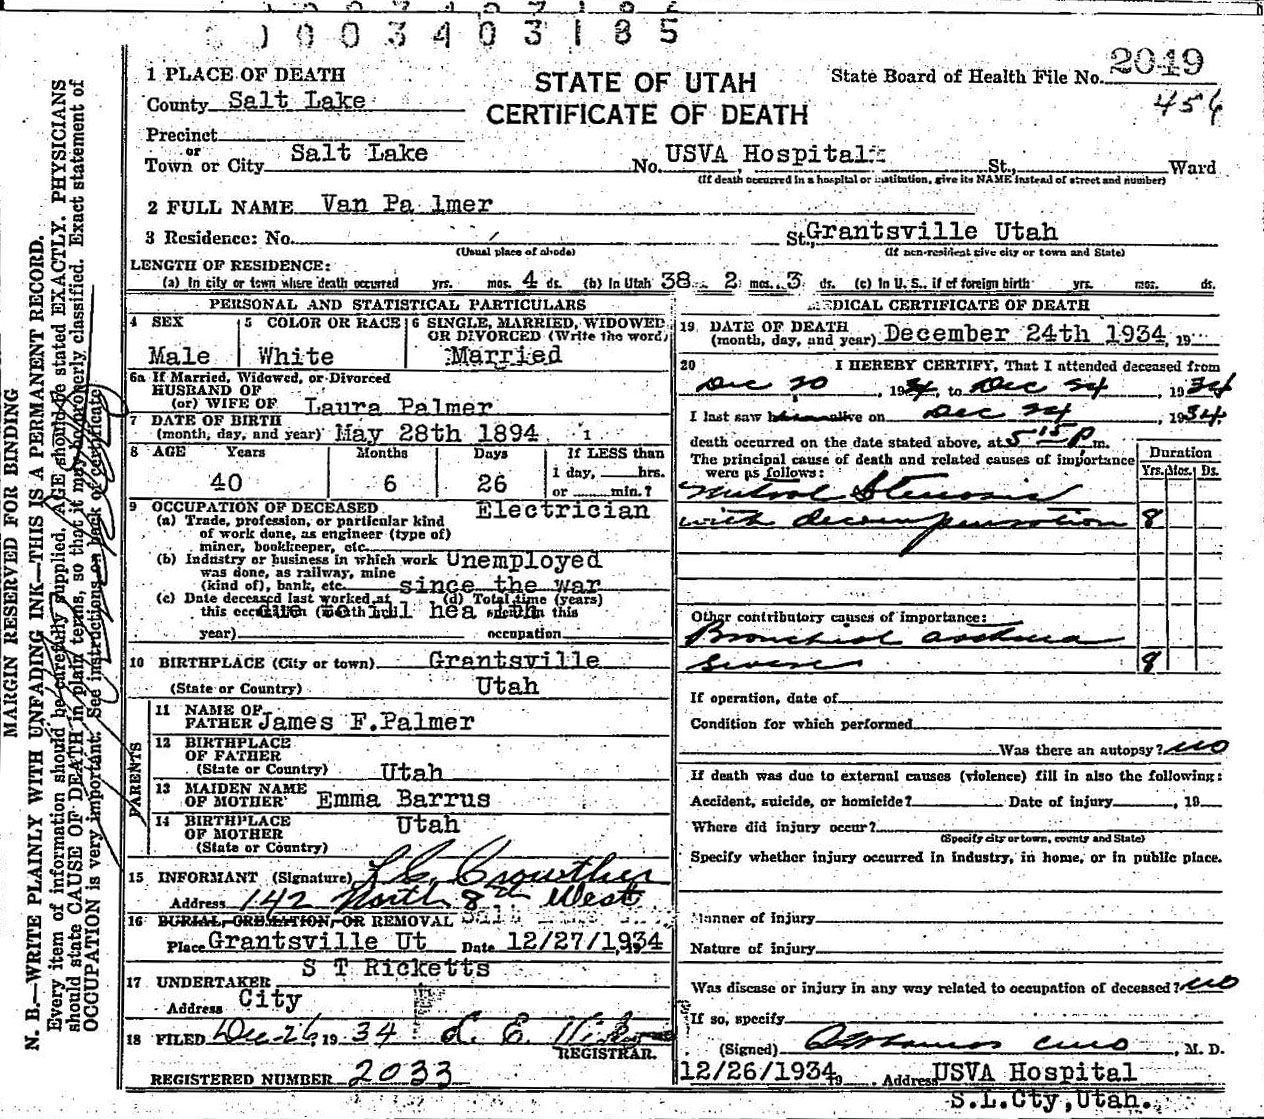 0003403185
1 PLACE OF DEATH
STATE OF UTAH
CERTIFICATE OF DEATH
State Board of Health File No. 2049
456
County Salt Lake
Precinct
or
Town or City Salt Lake No. USVA Hospital St., Ward
(If death occurred in a hospital or institution, give its NAME instead of street and number)
2 FULL NAME Van Pa lmer
3 Residence: No. St., Grantsville Utah
(Usual place of abode) (If non-resident give city or town and State)
LENGTH OF RESIDENCE:
(a) In city or town where death occurred yrs. mos. 4 ds. (b) In Utah 38 2 mos. 3 ds. (c) In U. S., if of foreign birth yrs. mos. ds.
PERSONAL AND STATISTICAL PARTICULARS
4 SEX
Male
5 COLOR OR RACE
White
6 SINGLE, MARRIED, WIDOWED
OR DIVORCED (Write the word)
Married
6a If Married, Widowed, or Divorced
HUSBAND OF
(or) WIFE OF Laura Palmer
7 DATE OF BIRTH
(month, day, and year) May 28th 1894
8 AGE Years Months Days If LESS than
1 day, hrs.
40 6 26 or min.?
9 OCCUPATION OF DECEASED Electrician
(a) Trade, profession, or particular kind
of work done, as engineer (type of)
miner, bookkeeper, etc.
(b) Industry or business in which work Unemployed
was done, as railway, mine
(kind of), bank, etc. since the war
(c) Date deceased last worked at (d) Total time (years)
this occupation (month and spent in this
due to ill hea lth
year) occupation
10 BIRTHPLACE (City or town) Grantsville
(State or Country) Utah
PARENTS
11 NAME OF
FATHER James F.Palmer
12 BIRTHPLACE
OF FATHER
(State or Country) Utah
13 MAIDEN NAME
OF MOTHER Emma Barrus
14 BIRTHPLACE Utah
OF MOTHER
(State or Country)
15 INFORMANT (Signature) L. C. Crowther
Address 142 North 8th West
16 BURIAL, CREMATION, OR REMOVAL Salt
Place Grantsville Ut Date 12/27/1934
17 UNDERTAKER S T Ricketts
Address City
18 FILED Dec 26, 19 34 L. E.
REGISTRAR.
REGISTERED NUMBER 2033
MEDICAL CERTIFICATE OF DEATH
19 DATE OF DEATH
(month, day, and year) December 24th 1934, 19
20 I HEREBY CERTIFY, That I attended deceased from
Dec 20, 1934, to Dec 24, 1934
I last saw him alive on Dec 24, 1934.
death occurred on the date stated above, at 5 15 P. m.
The principal cause of death and related causes of importance
were as follows:
Duration
Yrs. Mos. Ds.
Mitral Stenosis
with decompensation 8
Other contributory causes of importance:
Bronchial asthma
severe 8
If operation, date of
Condition for which performed
Was there an autopsy? no
If death was due to external causes (violence) fill in also the following:
Accident, suicide, or homicide? Date of injury, 19
Where did injury occur?
(Specify city or town, county and State)
Specify whether injury occurred in industry, in home, or in public place.
Manner of injury
Nature of injury
Was disease or injury in any way related to occupation of deceased? no
If so, specify
(Signed) , M. D.
12/26/1934 19 Address USVA Hospital
S.L.Cty,Utah.
MARGIN RESERVED FOR BINDING
N. B.—WRITE PLAINLY WITH UNFADING INK—THIS IS A PERMANENT RECORD.
Every item of information should be carefully supplied. AGE should be stated EXACTLY. PHYSICIANS
should state CAUSE OF DEATH in plain terms, so that it may be properly classified. Exact statement of
OCCUPATION is very important. See instructions on back of certificate.